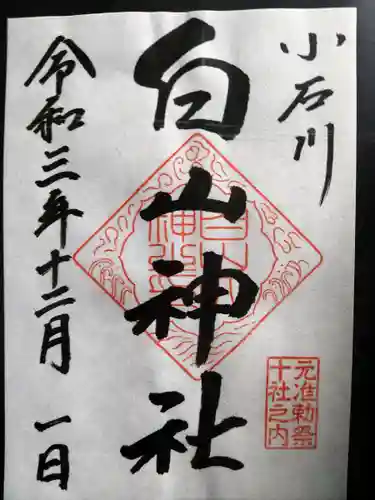 小石川
白山神社
白山
神社
元准勅祭
十社之内
令和三年十二月一日